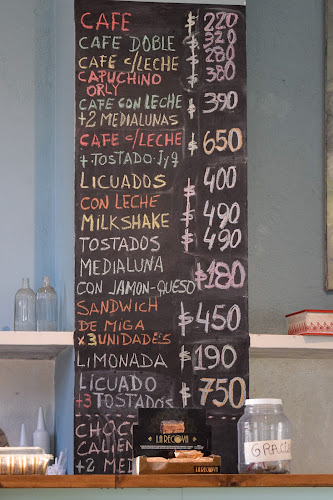 CAFE $ 220
CAFE DOBLE $ 320
CAFE c/LECHE $ 280
CAPUCHINO $ 380
ORLY
CAFE CON LECHE $ 390
+2 MEDIALUNAS
CAFE c/LECHE $ 650
+ TOSTADO J y Q
LICUADOS $ 400
CON LECHE $ 490
MILKSHAKE
TOSTADOS $ 490
MEDIALUNA $180
CON JAMON-QUESO
SANDWICH $ 450
DE MIGA
x3UNIDADES
LIMONADA $ 190
LICUADO $ 750
+3 TOSTADOS
CHOC
CALIEN
+2 MED
LA RECOVA
LA RECOVA
LA RECOVA
GRACIAS